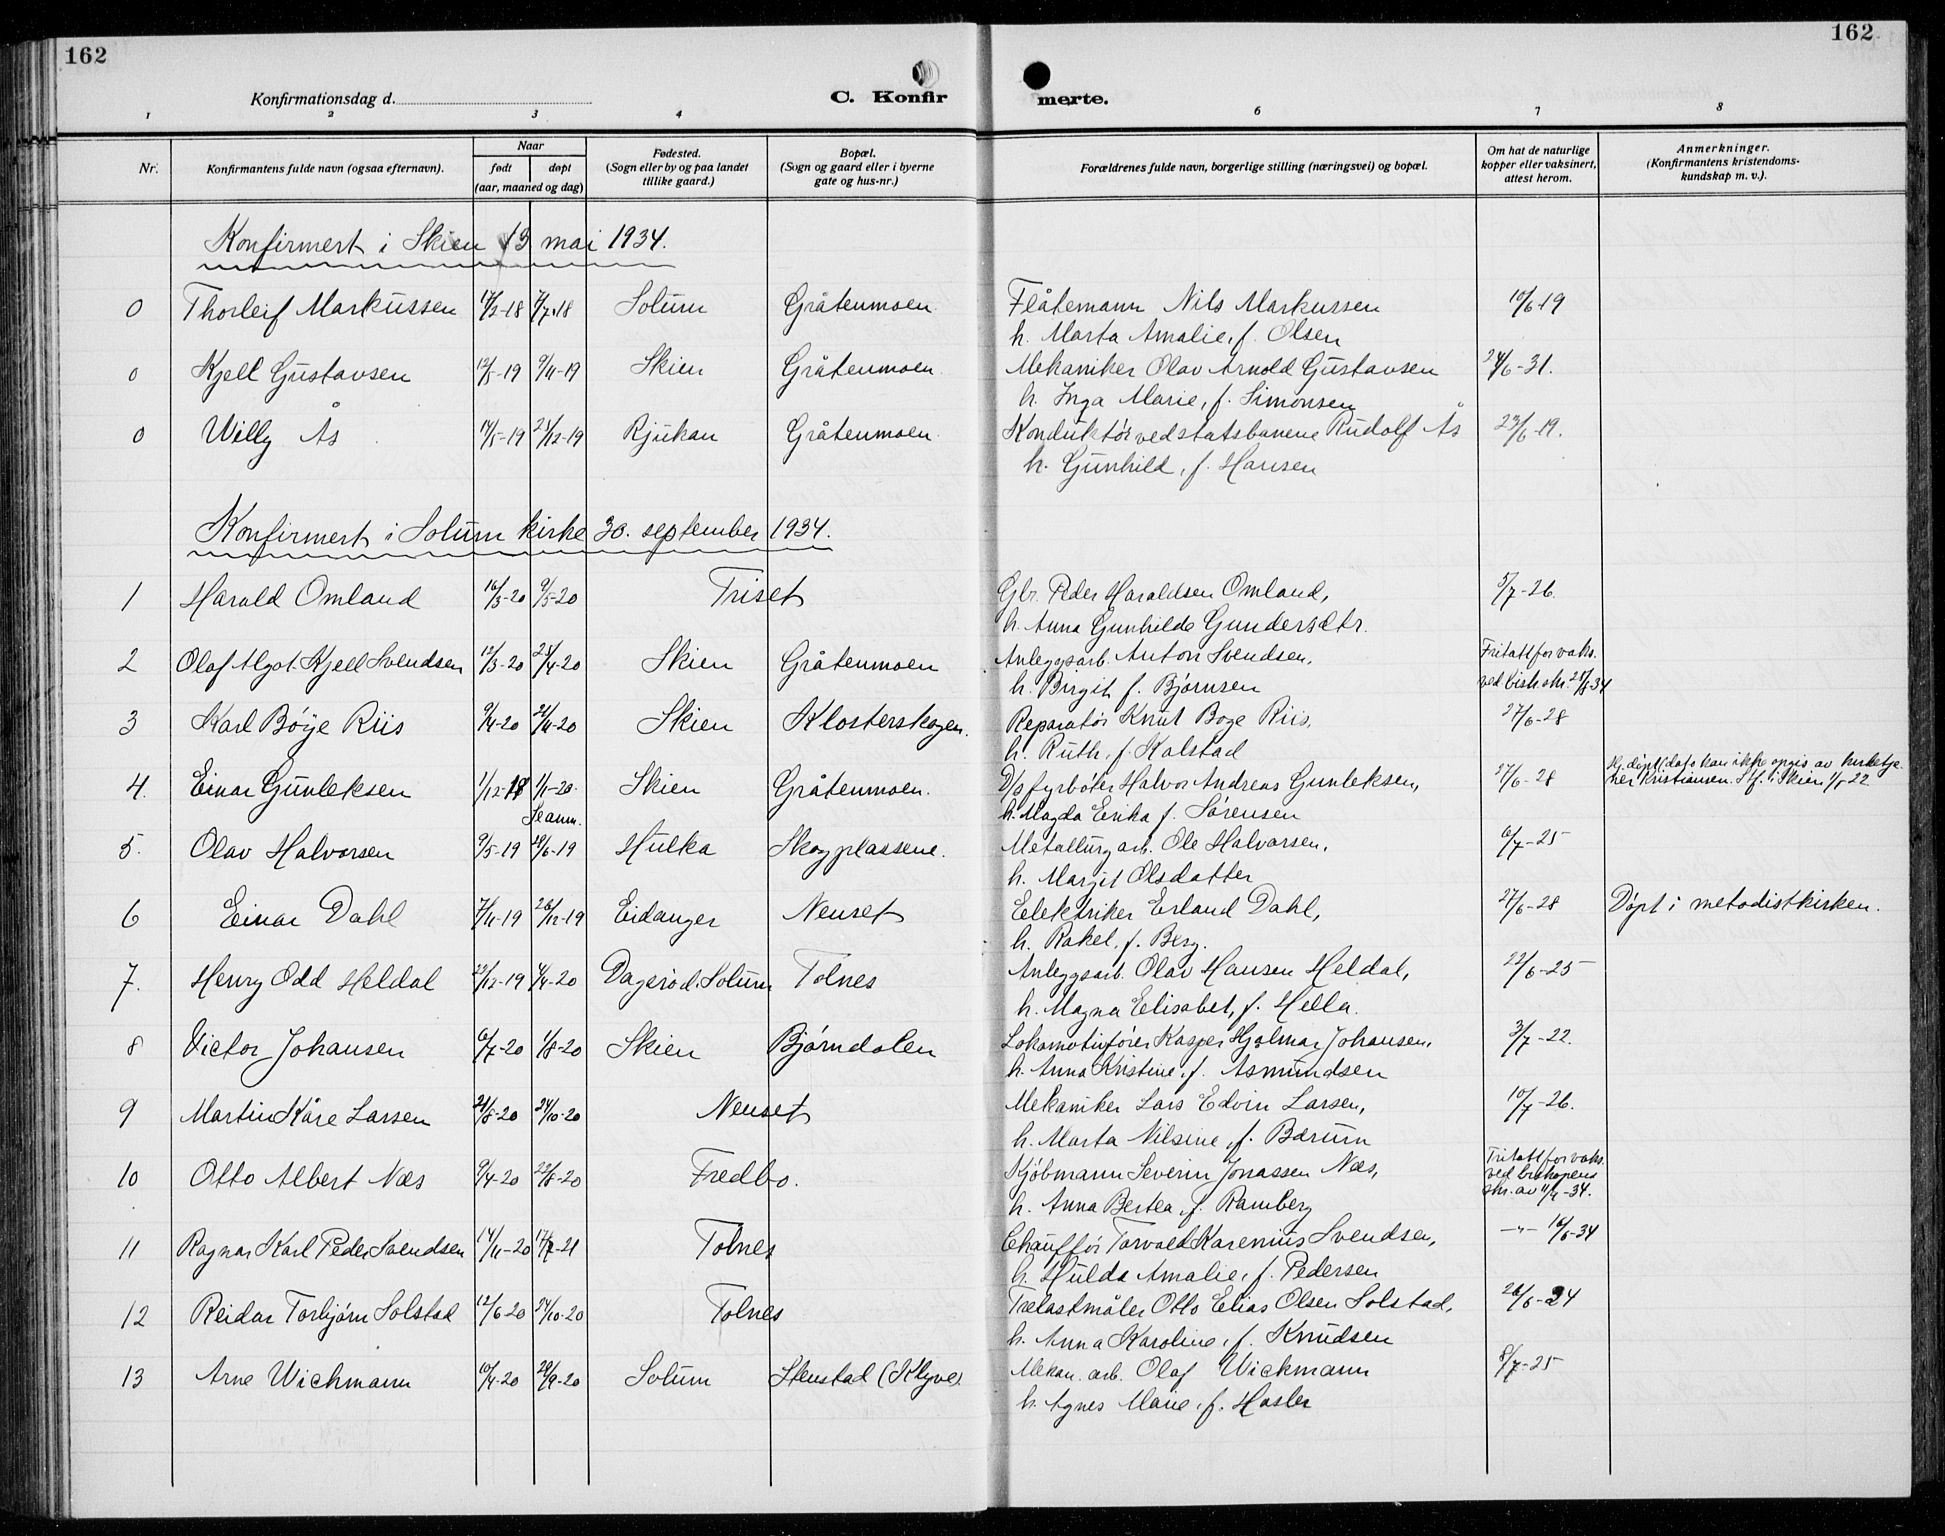 162
162
Konfirmationsdag d.
C. Konfirmerte.
1 2 3 4 6 7 8
Nr. Konfirmantens fulde navn (ogsaa efternavn). Naar født døpt (aar, maaned og dag) Fødested. (Sogn eller by og paa landet tillike gaard.) Bopæl. (Sogn og gaard eller i byerne gate og hus-nr.) Forældrenes fulde navn, borgerlige stilling (næringsvei) og bopæl. Om hat de naturlige kopper eller vaksinert, attest herom. Anmerkninger. (Konfirmantens kristendoms-kundskap m. v.).
Konfirmert i Skien 13 mai 1934.
0 Thorleif Markussen 17/2-18 7/7-18 Solum Gråtenmoen Flåtemann Nils Markussen 10/6-19
h. Marta Amalie, f. Olsen
0 Kjell Gustavsen 12/5-19 9/11-19 Skien Gråtenmoen. Mekaniker Olav Arnold Gustavsen 24/6-31.
h. Inga Marie, f. Simonsen
0 Willy Ås 14/5-19 21/12-19 Rjukan Gråtenmoen. Konduktör ved statsbanene Rudolf Ås 23/6-19.
h. Gunhild, f. Hansen
Konfirmert i Solum kirke 30. september 1934.
1 Harald Omland 16/3-20 9/5-20 Triset Gbr. Peder Haraldsen Omland, 5/7-26.
h. Anna Gunhilde Gundersdtr.
2 Olaf Algot Kjell Svendsen 12/3-20 24/4-20 Skien Gråtenmoen Anleggsarb. Anton Svendsen, Fritatt for vaks.
h. Birgit f. Björnsen ved bisk. skr.
3 Karl Böye Riis 9/4-20 21/11-20 Skien Klosterskogen. Reparatör Knut Boge Riis, 27/6-28
h. Ruth, f. Kolstad
4. Einar Gunleksen 1/12-18 1/1-20. Skien Gråtenmoen. D/s fyrböter Halvor Andreas Gunleksen, 27/6-28 Hj. döpt/dato kan ikke opgis av
h. Magda Erika f. Sörensen
5. Olav Halvorsen 9/5-19 29/6-19 Hulka Skogplassene. Metallurg arb. Ole Halvorsen, 6/7-25
h. Margit Olsdatter
6 Einar Dahl 7/11-19 26/12-19 Eidanger Nenset Elektriker Erland Dahl, 27/6-28 Döpt i metodistkirken.
h. Rakel, f. Berg.
7. Henry Odd Heldal 23/12-19 4/4-20 Dageröd. Solum Tolnes Anleggsarb. Olav Hansen Heldal, 22/6-25
h. Magna Elisabet, f. Hella.
8 Victor Johansen 6/7-20 1/8-20 Skien Björndalen Lokomotivförer Kasper Hjalmar Johansen, 3/7-22.
h. Anna Kristine, f. Asmundsen
9 Martin Kåre Larsen 21/8-20 24/10-20 Nenset Mekaniker Lars Edvin Larsen, 10/7-26.
h. Marta Nilsine, f. Bærum
10 Otto Albert Næs 9/4-20 22/8-20 Fredbo. Kjöbmann Severin Jonassen Næs, Fritatt for vaks. ved biskopens skr. av 11/4-34.
h. Anna Bertea, f. Ramberg
11 Ragnar Karl Peder Svendsen 14/11-20 17/7-21 Tolnes Chaufför Torvald Karenius Svendsen, -"- 16/6-34
h. Hulda Amalie, f. Pedersen
12 Reidar Torbjörn Solstad 12/6-20 24/10-20 Tolnes Trelastmåler Otto Elias Olsen Solstad, 26/6-24
h. Anna Karoline, f. Knudsen
13 Arne Wichmann 10/4-20 29/9-20 Solum Stenstad (Klyve). Mekan. arb. Olaf Wickmann 8/7-25
h. Agnes Marie, f. Hasler